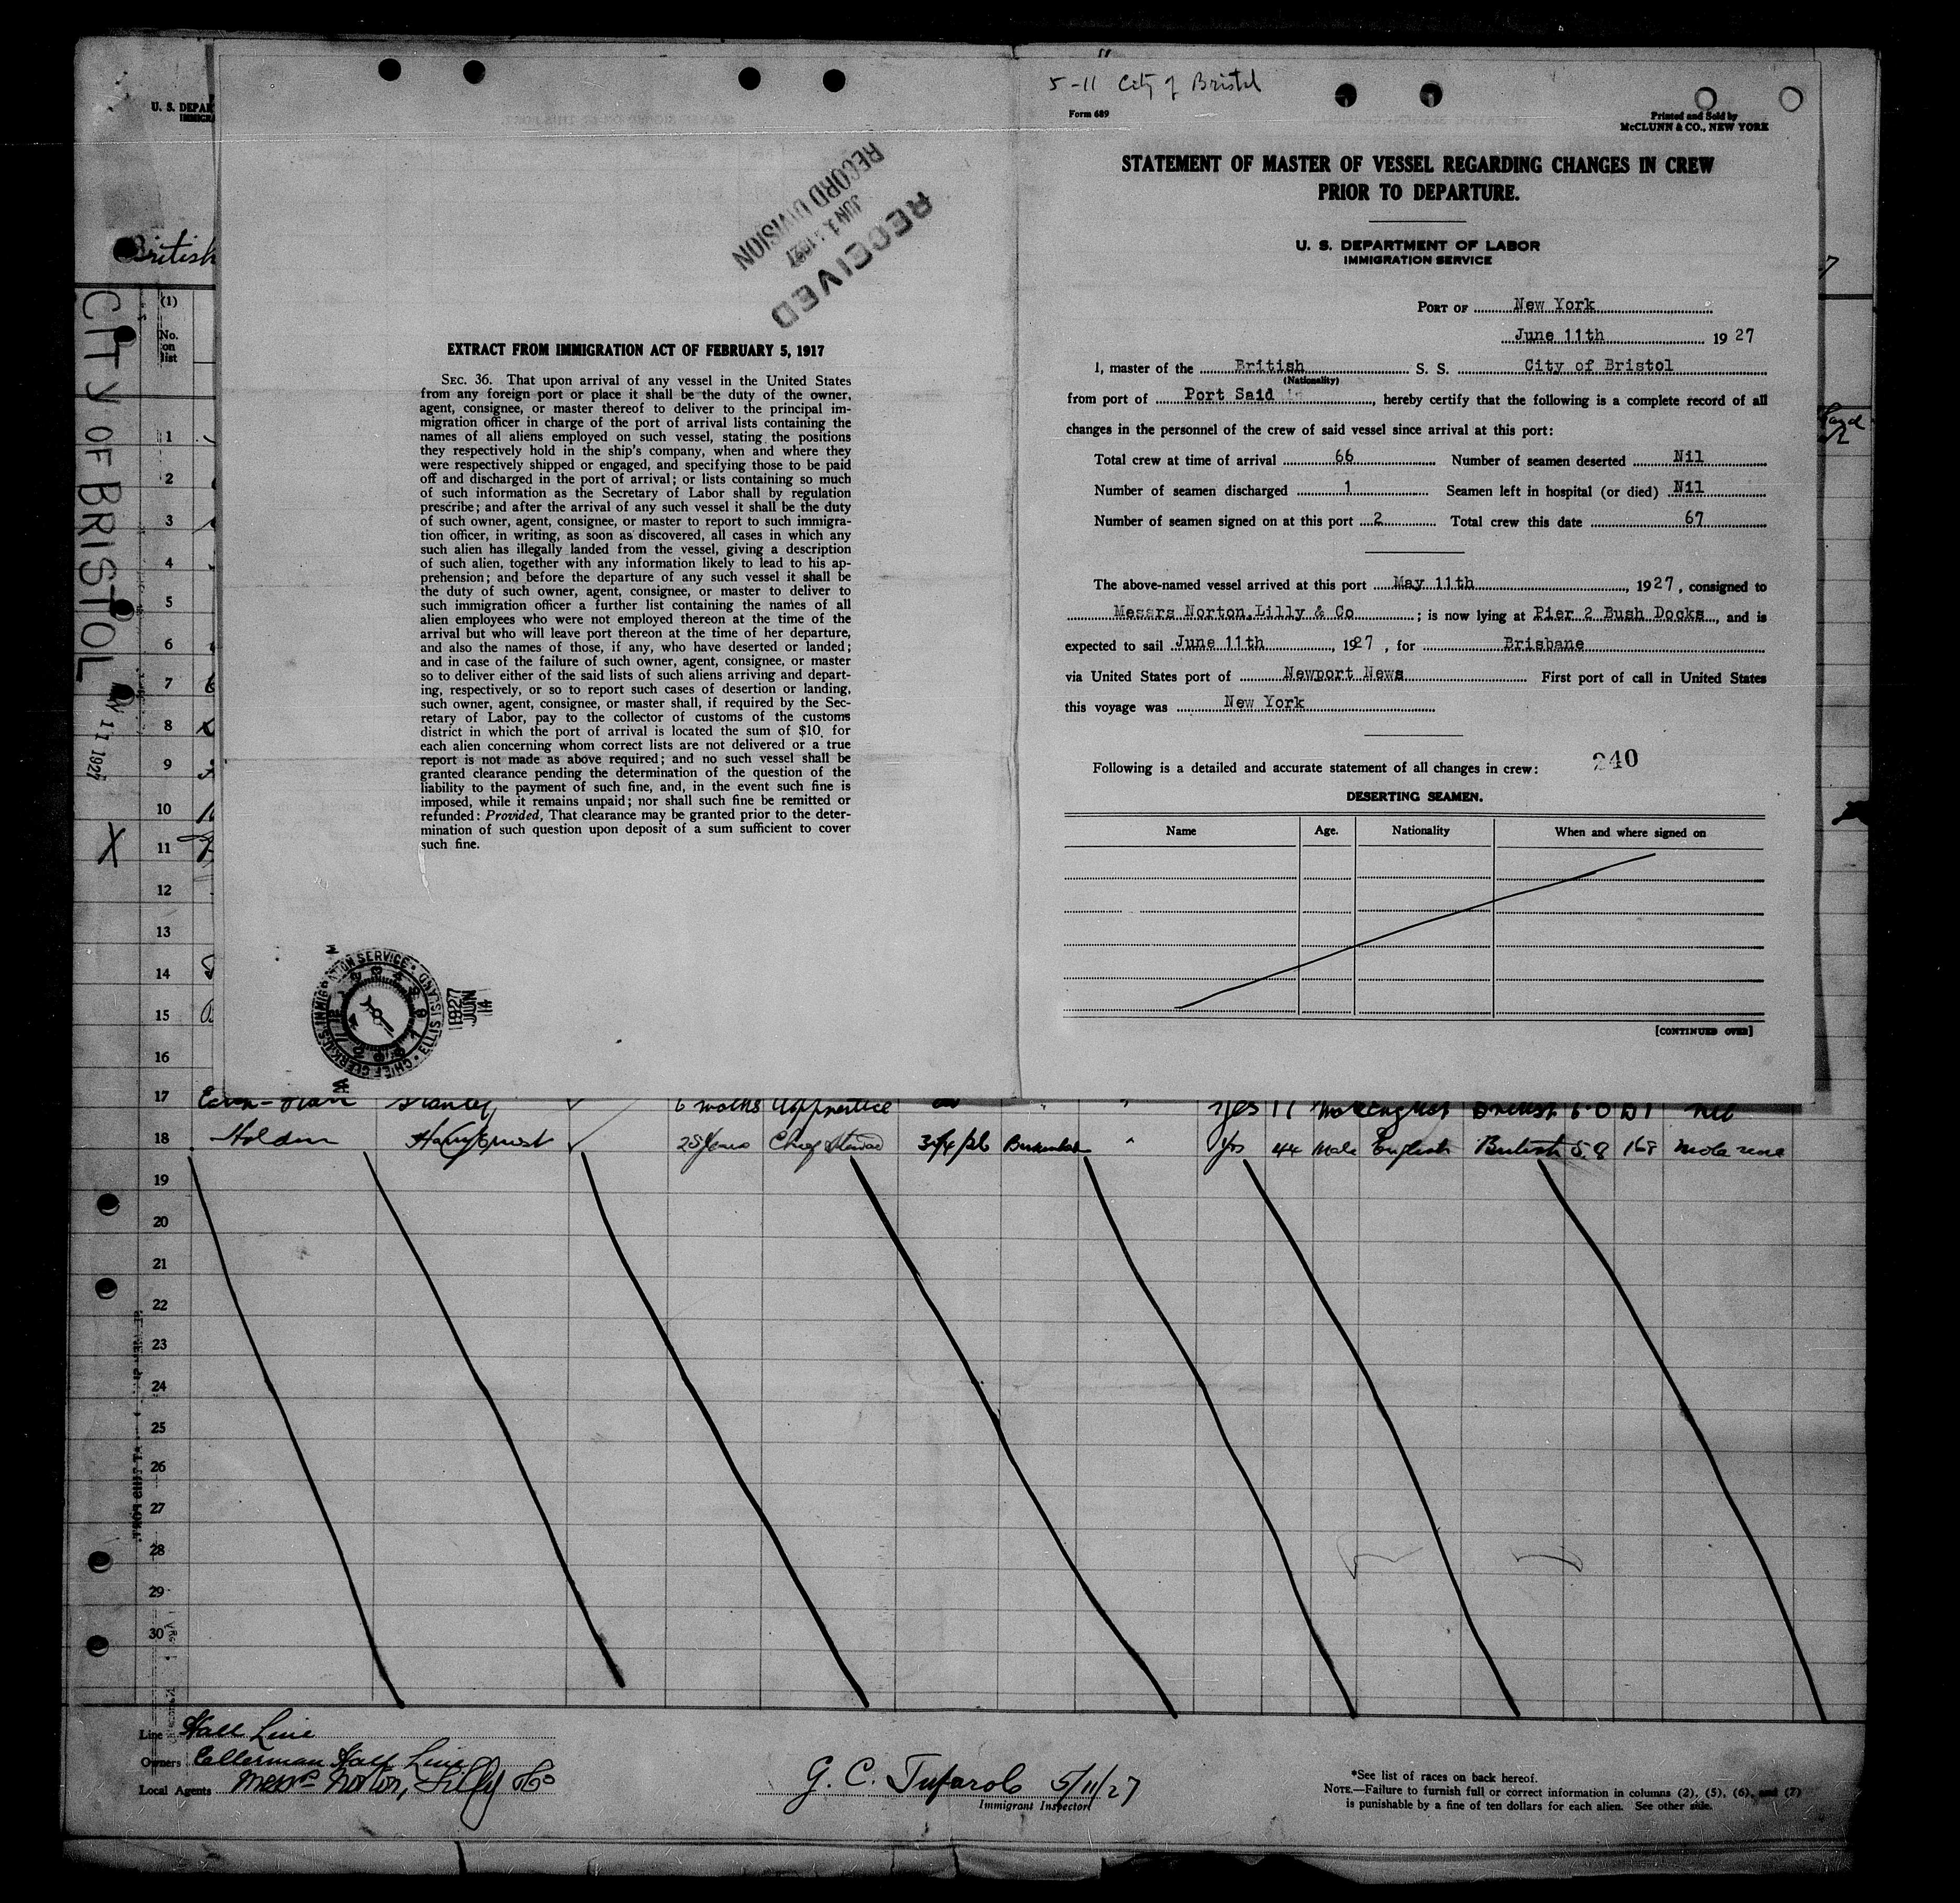 5-11 City of Bristol
Form 689
Printed and Sold by
McCLUNN & CO., NEW YORK
STATEMENT OF MASTER OF VESSEL REGARDING CHANGES IN CREW
PRIOR TO DEPARTURE.
U. S. DEPARTMENT OF LABOR
IMMIGRATION SERVICE
PORT OF New York
June 11th 1927
I, master of the British S. S. City of Bristol
(Nationality)
from port of Port Said, hereby certify that the following is a complete record of all
changes in the personnel of the crew of said vessel since arrival at this port:
Total crew at time of arrival 66 Number of seamen deserted Nil
Number of seamen discharged 1 Seamen left in hospital (or died) Nil
Number of seamen signed on at this port 2 Total crew this date 67
The above-named vessel arrived at this port May 11th, 1927, consigned to
Messrs Norton,Lilly & Co; is now lying at Pier 2 Bush Docks, and is
expected to sail June 11th, 1927, for Brisbane
via United States port of Newport News First port of call in United States
this voyage was New York
Following is a detailed and accurate statement of all changes in crew: 240
DESERTING SEAMEN.
Name Age. Nationality When and where signed on
[CONTINUED OVER]
RECEIVED
JUN 1927
RECORD DIVISION
EXTRACT FROM IMMIGRATION ACT OF FEBRUARY 5, 1917
SEC. 36. That upon arrival of any vessel in the United States
from any foreign port or place it shall be the duty of the owner,
agent, consignee, or master thereof to deliver to the principal im-
migration officer in charge of the port of arrival lists containing the
names of all aliens employed on such vessel, stating the positions
they respectively hold in the ship's company, when and where they
were respectively shipped or engaged, and specifying those to be paid
off and discharged in the port of arrival; or lists containing so much
of such information as the Secretary of Labor shall by regulation
prescribe; and after the arrival of any such vessel it shall be the duty
of such owner, agent, consignee, or master to report to such immigra-
tion officer, in writing, as soon as discovered, all cases in which any
such alien has illegally landed from the vessel, giving a description
of such alien, together with any information likely to lead to his ap-
prehension; and before the departure of any such vessel it shall be
the duty of such owner, agent, consignee, or master to deliver to
such immigration officer a further list containing the names of all
alien employees who were not employed thereon at the time of the
arrival but who will leave port thereon at the time of her departure,
and also the names of those, if any, who have deserted or landed;
and in case of the failure of such owner, agent, consignee, or master
so to deliver either of the said lists of such aliens arriving and depart-
ing, respectively, or so to report such cases of desertion or landing,
such owner, agent, consignee, or master shall, if required by the Sec-
retary of Labor, pay to the collector of customs of the customs
district in which the port of arrival is located the sum of $10 for
each alien concerning whom correct lists are not delivered or a true
report is not made as above required; and no such vessel shall be
granted clearance pending the determination of the question of the
liability to the payment of such fine, and, in the event such fine is
imposed, while it remains unpaid; nor shall such fine be remitted or
refunded: Provided, That clearance may be granted prior to the deter-
mination of such question upon deposit of a sum sufficient to cover
such fine.
U. S. DEPAR
IMMIGRA
British
CITY OF BRISTOL
11 1927
X
(1)
No.
on
list
1
2
3
4
5
6
7
8
9
10
11
12
13
14
15
16
17 Stanley 6 months Apprentice yes 17
18 Holden Harry Ernest 28 years Chief Steward Birkenhead yes 44 Male English British 5.8 168 mole nose
19
20
21
22
23
24
25
26
27
28
29
30
Line Hall Line
Owners Ellerman Hall Line
Local Agents Messrs Norton, Lilly & Co
G. C. Tufarolo 5/11/27
Immigrant Inspector
*See list of races on back hereof.
NOTE.—Failure to furnish full or correct information in columns (2), (5), (6), and (7)
is punishable by a fine of ten dollars for each alien. See other side.